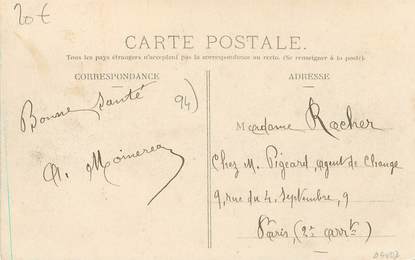 20€
CARTE POSTALE.
Tous les pays étrangers n'acceptent pas la correspondance au recto. (Se renseigner à la poste).
CORRESPONDANCE
ADRESSE
Bonne santé
94)
A. Moinereau
Madame Rocher
Chez M. Pigeard, agent de Change
9, rue du 4 Septembre, 9
Paris (2e arrt)